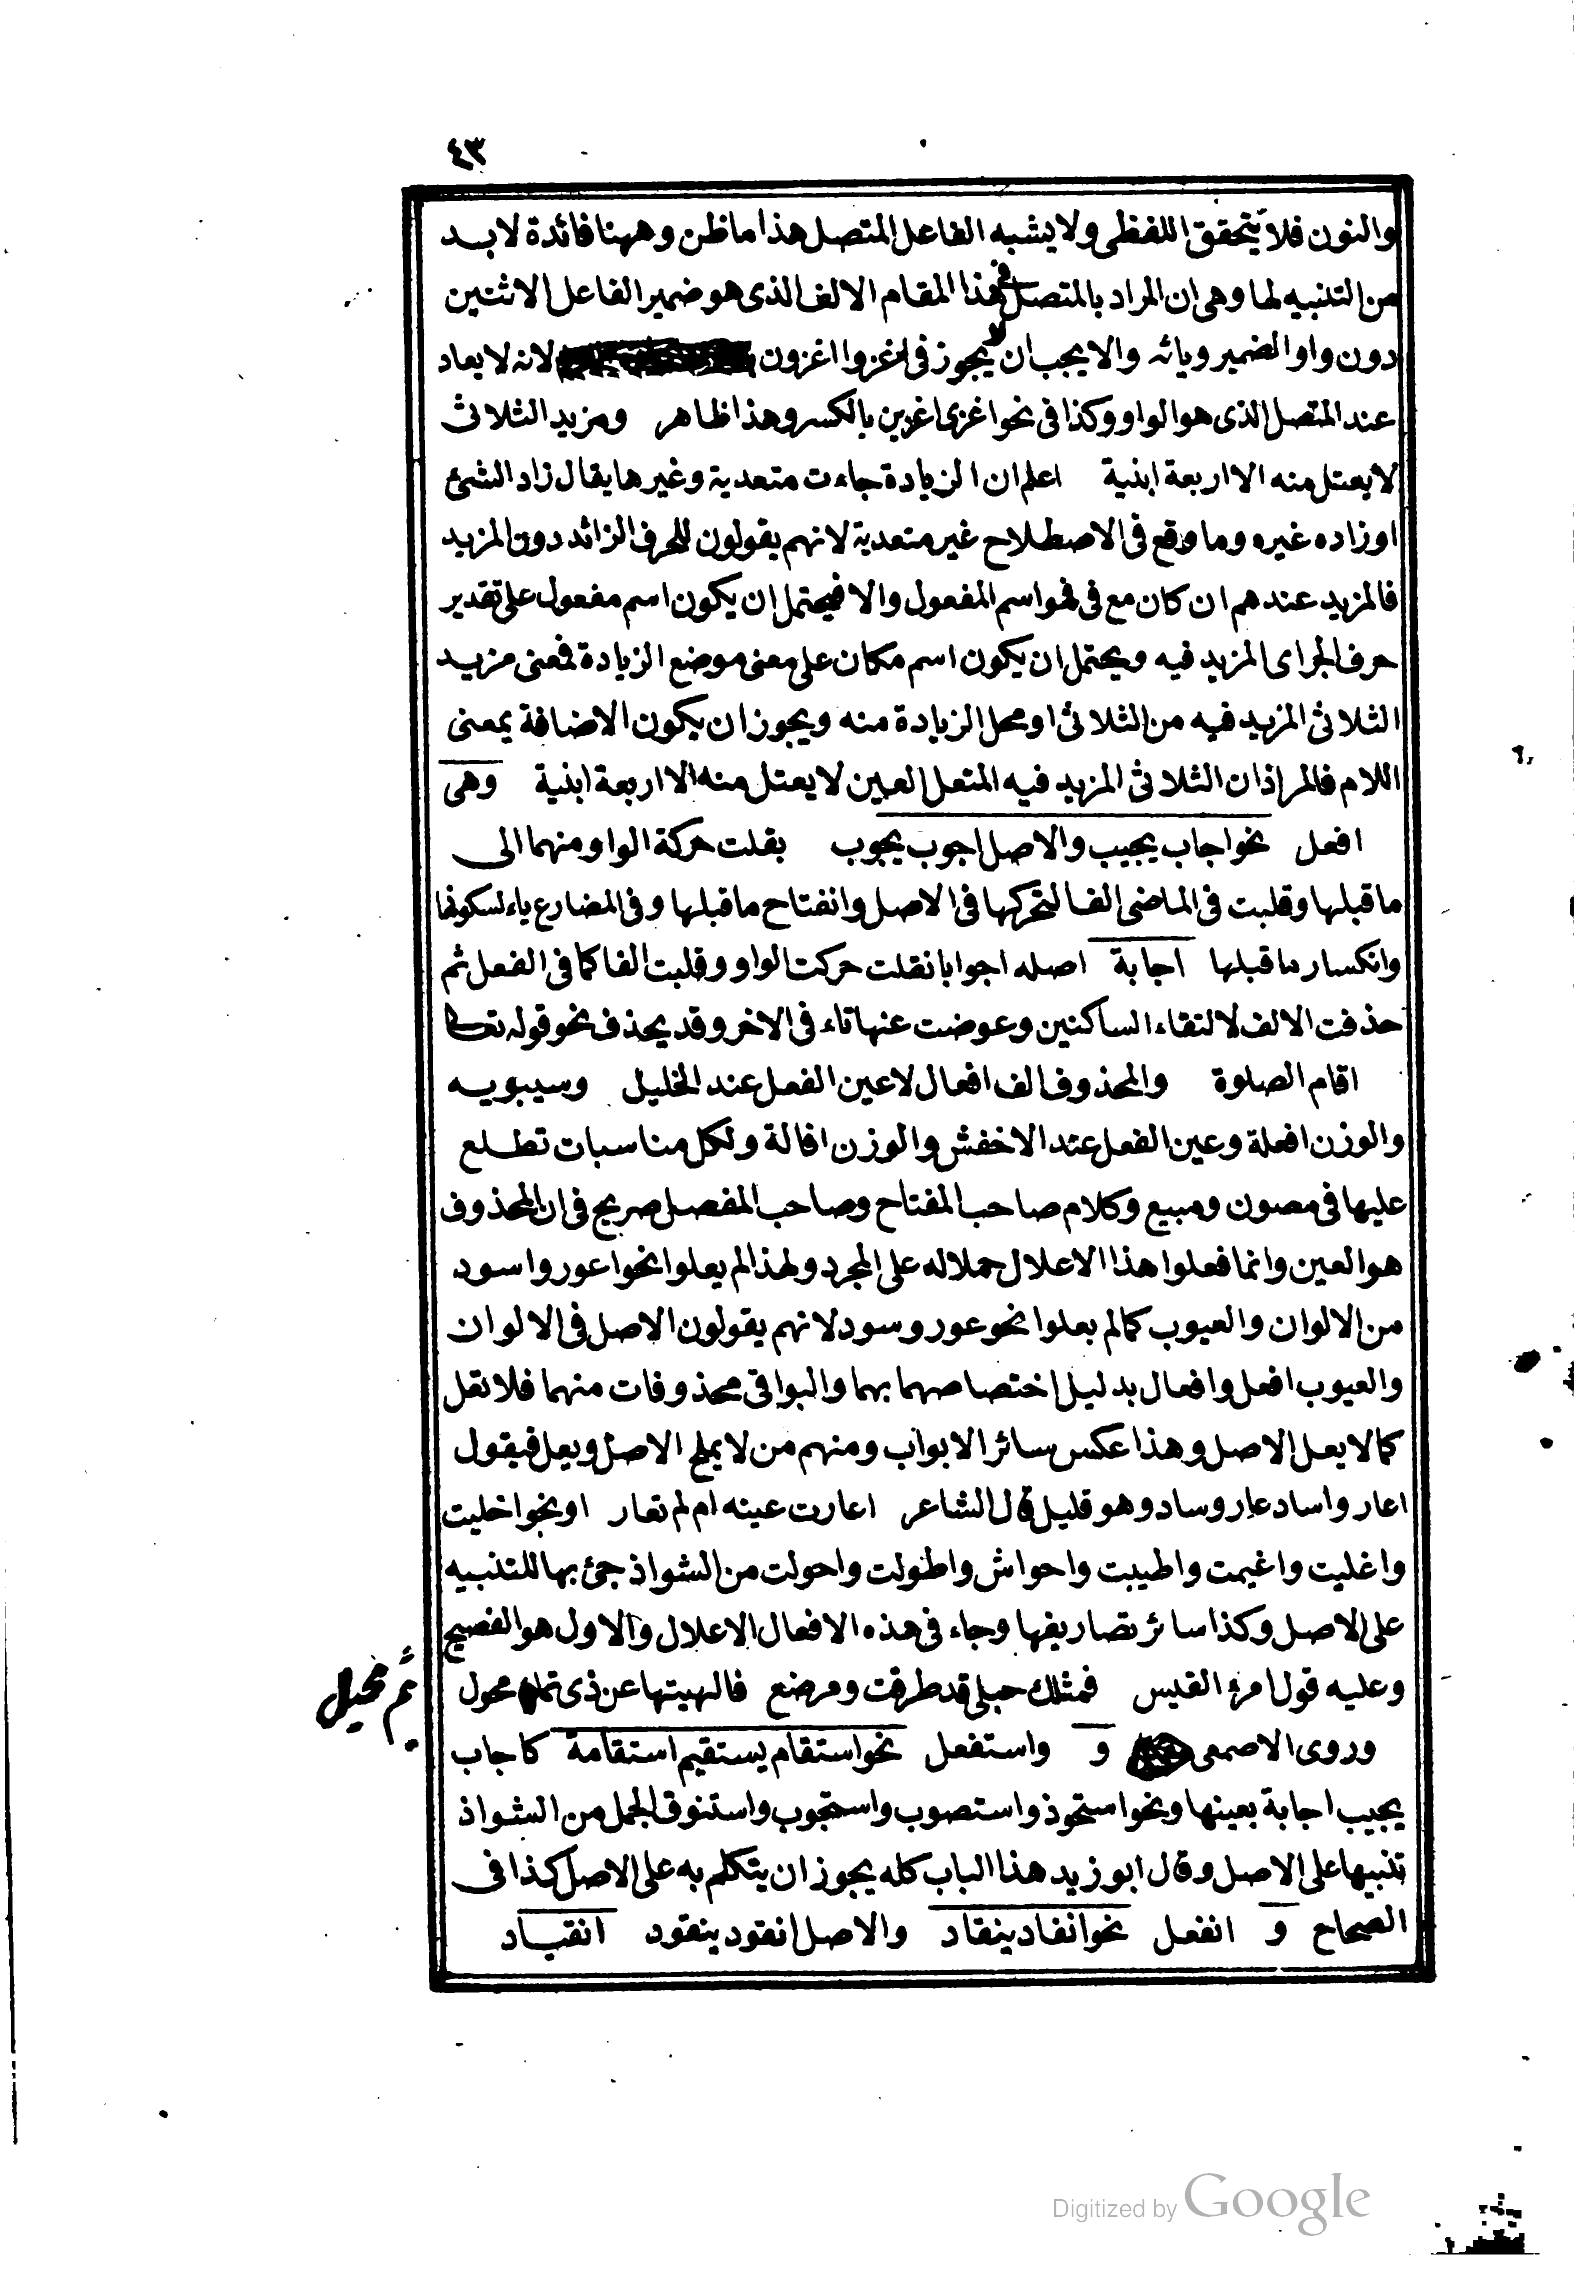 ٤٣
والنون فلا يتحقق اللفظى ولا يشبه الفاعل المتصل هذا ما ظن وههنا فائدة لا بد
من التنبيه لها وهى ان المراد بالمتصل فى هذا المقام الالف الذى هو ضمير الفاعل الاثنين
دون واو الضمير ويائه والا يجب ان لا يجوز فى اغزوا اغزون لانه لا يعاد
عند المتصل الذى هو الواو وكذا فى نحو اغزى اغزين بالكسر وهذا ظاهر ومزيد الثلاثى
لا يعتل منه الا اربعة ابنية اعلم ان الزيادة جاءت متعدية وغيرها يقال زاد الشئ
او زاده غيره وما وقع فى الاصطلاح غير متعدية لانهم يقولون للحرف الزائد دون المزيد
فالمزيد عندهم ان كان مع فى فهو اسم المفعول والا فيحتمل ان يكون اسم مفعول على تقدير
حرف الجر اى المزيد فيه ويحتمل ان يكون اسم مكان على معنى موضع الزيادة فمعنى مزيد
الثلاثى المزيد فيه من الثلاثى او محل الزيادة منه ويجوز ان يكون الاضافة بمعنى
اللام فالمراد ان الثلاثى المزيد فيه المتعل العين لا يعتل منه الا اربعة ابنية وهى
افعل نحو اجاب يجيب والاصل اجوب يجوب بقلت حركة الواو منهما الى
ما قبلها وقلبت فى الماضى الفا لتحركها فى الاصل وانفتاح ما قبلها وفى المضارع ياء لسكونها
وانكسار ما قبلها اجابة اصله اجوابا نقلت حركت الواو وقلبت الفا كما فى الفعل ثم
حذفت الالف لالتقاء الساكنين وعوضت عنها تاء فى الاخر وقد يحذف نحو قوله تعا
اقام الصلوة والمحذوف الف افعال لا عين الفعل عند الخليل وسيبويه
والوزن افعلة وعين الفعل عند الاخفش والوزن افالة ولكل مناسبات تطلع
عليها فى مصون ومبيع وكلام صاحب المفتاح وصاحب المفصل صريح فى ان المحذوف
هو العين وانما فعلوا هذا الاعلال حملا له على المجرد ولهذا لم يعلوا نحو اعور واسود
من الالوان والعيوب كما لم يعلوا نحو عور وسود لانهم يقولون الاصل فى الالوان
والعيوب افعل وافعال بدليل اختصاصهما بهما والبواقى محذوفات منهما فلا تعل
كما لا يعل الاصل وهذا عكس سائر الابواب ومنهم من لا يملح الاصل ويعل فيقول
اعار واساد عار وساد وهو قليل قال الشاعر اعارت عينه ام لم تعار او نحو اخليت
واغليت واغيمت واطيبت واحواش واطولت واحولت من الشواذ جئ بها للتنبيه
على الاصل وكذا سائر تصاريفها وجاء فى هذه الافعال الاعلال والاول هو الفصيح
وعليه قول امرء القيس فمثلك حبلى قد طرقت ومرضع فالهيتها عن ذى تمام محول
ثم محيل
وروى الاصمعى و واستفعل نحو استقام يستقيم استقامة كاجاب
يجيب اجابة بعينها ونحو استحوذ واستصوب واستجوب واستنوق الجمل من الشواذ
تنبيها على الاصل وقال ابو زيد هذا الباب كله يجوز ان يتكلم به على الاصل كذا فى
الصحاح و انفعل نحو انقاد ينقاد والاصل انقود ينقود انقياد
Digitized by Google